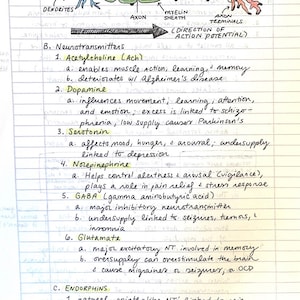 DENDRITES
AXON
MYELIN
SHEATH
AXON
TERMINALS
(DIRECTION OF
ACTION POTENTIAL)
B. Neurotransmitters
1. Acetylcholine (Ach)
a. enables muscle action, learning, + memory
b. deteriorates w/ Alzheimer's disease
2. Dopamine
a. influences movement, learning, attention,
and emotion; excess is linked to schizo-
phrenia, low supply causes Parkinson's
3. Serotonin
a. affects mood, hunger, + arousal; undersupply
linked to depression
4. Norepinephrine
a. Helps control alertness + arousal (vigilance),
plays a role in pain relief + stress response
5. GABA (gamma aminobutyric acid)
a. major inhibitory neurotransmitter
b. undersupply linked to seizures, tremors, +
insomnia
6. Glutamate
a. major excitatory NT involved in memory
b. oversupply can overstimulate the brain
+ cause migraines or seizures, or OCD
C. ENDORPHINS
1. natural, opiatelike NT linked to pain